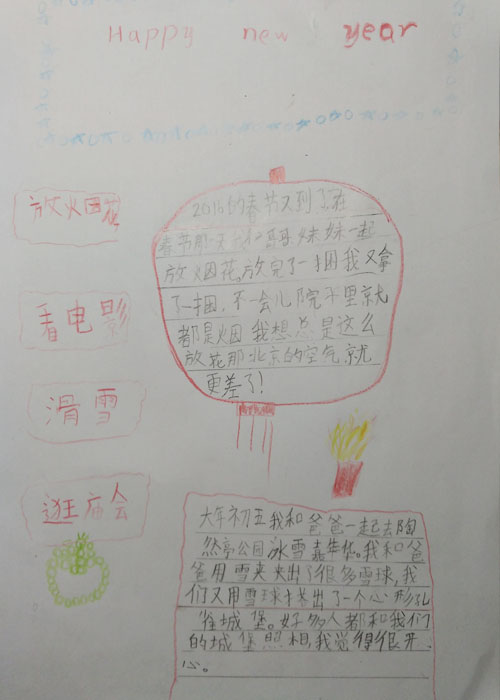 Happy new year
放火因花
看电影
滑雪
逛庙会
2016的春节又到了在
春节那天我和哥哥妹妹一起
放烟花。放完了一捆我又拿
了一捆,不一会儿院子里就
都是烟 我想总是这么
放花那北京的空气就
更差了!
大年初五我和爸爸一起去陶
然亭公园冰雪嘉年华。我和爸
爸用雪夹夹出了很多雪球,我
们又用雪球搭出了一个心形
城堡。好多人都和我们
的城堡照相,我觉得很开
心。